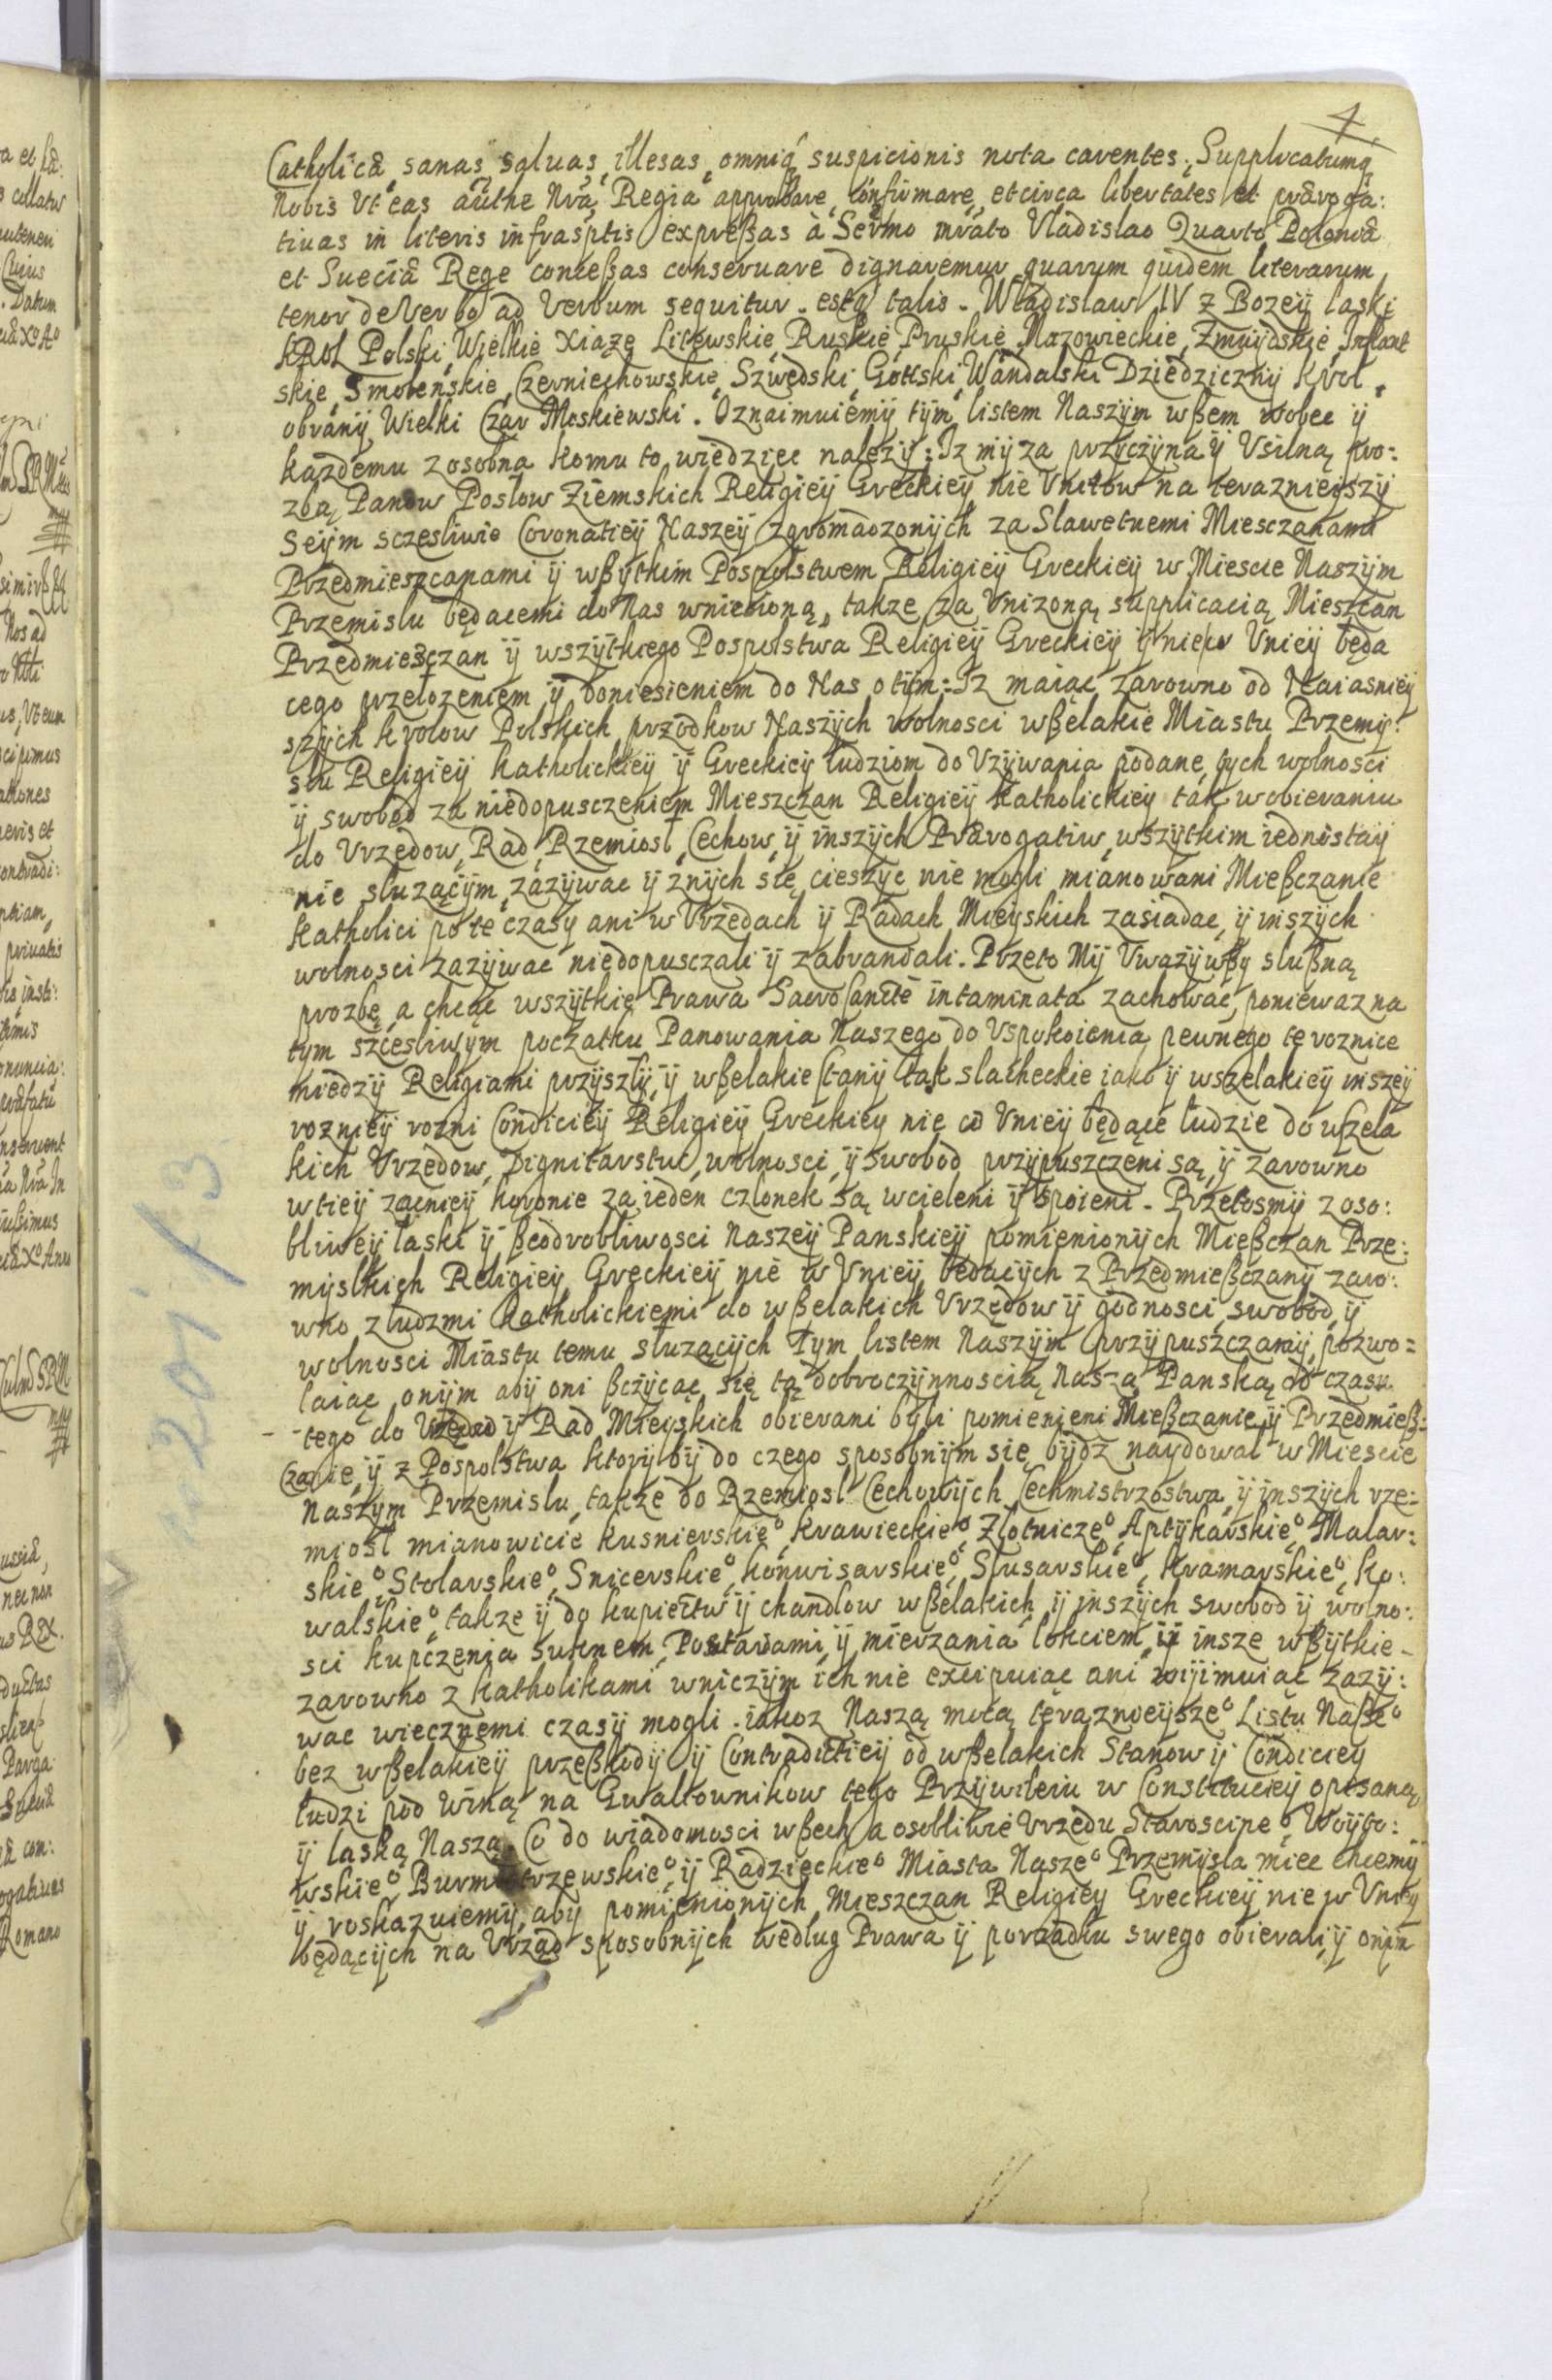 4
Catholicæ sanas, saluas, illesas, omniq suspicionis nota carentes, Supplicatumq
Nobis Vt eas authe Nrã Regia approbare, confirmare, et circa libertates et præroga:
tiuas in literis infrasptis expreßas à Sermo mrato Vladislao Quarto Poloniæ
et Sueciæ Rege conceßas conseruare dignaremur quarum quidem literarum
tenor de Verbo ad Verbum sequitur. estq talis. Władisław IV z Bozeÿ łaski
KROL Polski, Wielkie Xiąże Litewskie, Ruskie, Pruskie, Mazowieckie, Zmuÿdskie, Inflant
skie, Smolenskie, Czerniechowskie, Szwędski, Gottski, Wandalski Dziedzicznÿ Krol,
obranÿ Wielki Czar Moskiewski. Oznaimuiemÿ tÿm listem Naszÿm wßem wobec ÿ
kazdemu zosobna komu to wiedziec nalezÿ: Iz mÿ za przÿczÿną ÿ Vsilną pro:
zbą Panow Posłow Ziemskich Religieÿ Greckieÿ nie Vnitow na terazniejszÿ
Seÿm sczesliwie Coronatieÿ Naszeÿ zgromadzonÿch za Sławetnemi Miesczanami
Przedmieszcanami ÿ wßÿtkim Pospolstwem Religieÿ Greckieÿ w Miescie Naszÿm
Przemislu będacemi do Nas wniesioną, takze za Vnizoną supplicacią Mieszcan
Przedmiesczan ÿ wszÿtkiego Pospolstwa Religieÿ Greckieÿ ÿ nie w Vnieÿ będa
cego przełozeniem ÿ doniesieniem do Nas o tÿm: Iz maiąc zarowno od Naiasnieÿ
szÿch Krolow Polskich przodkow Naszÿch wolnosci wßelakie Miastu Przemÿ:
slu Religieÿ Katholickieÿ ÿ Greckieÿ ludziom do Vzÿwania podane, tÿch wolnosci
ÿ swobod za niedopusczeniem Mieszczan Religieÿ Katholickieÿ tak wobieraniu
do Vrzędow, Rad, Rzemiosł, Cechow, ÿ inszÿch Prærogatiw, wszÿtkim iednostaÿ
nie słuzącÿm, zazÿwac ÿ znÿch się cieszÿc nie mogli mianowani Mießczanie
Katholici po te czasy ani w Vrzędach ÿ Radach Mieÿskich zasiadac, ÿ inszÿch
wolnosci zazÿwac niedopusczali ÿ zabraniali. Przeto Mÿ Vwazÿwßy słußną
prozbę a chcąc wszÿtkie Prawa Sacrosancte intaminata zachowac, poniewaz na
tym szcęsliwÿm początku Panowania Naszego do Vspokoienia pewnego te roznice
miedzÿ Religiami przÿszłÿ, ÿ wßelakie stanÿ tak slacheckie iako ÿ wszelakieÿ inszeÿ
roznieÿ rozni Condicieÿ Religieÿ Greckiey nie w Vnieÿ będące ludzie do wszela
kich Vrzedow, Dignitarstw, wolnosci, ÿ swobod przÿpuszczeni są, ÿ zarowno
wtieÿ zacnieÿ Koronie za ieden członek są wcieleni ÿ spoieni. Przetosmÿ z oso:
bliweÿ łaski ÿ ßcodrobliwosci Naszeÿ Panskieÿ pomienionÿch Mießczan Prze:
mÿslkich Religieÿ Greckieÿ nie w Vnieÿ będacÿch z Przedmießczanÿ zaro:
wno z ludzmi Katholickiemi do wßelakich Vrzędow ÿ godnosci, swobod, ÿ
wolnosci Miastu temu słuzącÿch Tym listem Naszÿm przÿpuszczamÿ, pozwo=
laiąc onÿm abÿ oni ßczÿcąc się tą dobroczÿnnoscią Naszą Panską od czasu
tego do Vrzędow ÿ Rad Mieÿskich obierani byli pomienieni Mießczanie, ÿ Przedmieß:
czanie, ÿ z Pospolstwa ktorÿ bÿ do czego sposobnÿm się bÿdz naydował w Miescie
Naszÿm Przemislu, takze do Rzemiosł Cechowÿch, Cechmistrzostwa, ÿ inszÿch rze=
miosł mianowicie Kusnierskieo, Krawieckieo, Złotniczeo, Aptÿkarskieo, Malar:
skieo, Stolarskieo, Snicerskieo, Konwisarskieo, Slusarskieo, Kramarskieo, Ko:
walskieo, takze ÿ do kupiectw ÿ chandlow wßelakich, ÿ inszÿch swobod ÿ wolno:
sci kupczenia suknem, Postawami, ÿ mierzania łokciem, ÿ insze wßÿtkie
zarowno z Katholikami wniczÿm ich nie excipuiąc ani wÿimuiąc zazÿ:
wac wiecznemi czasÿ mogli. iakoz Naszą mocą terazniejszeo Listu Naßeo
bez wßelakieÿ przeßkodÿ ÿ Contradictieÿ od wßelakich Stanow ÿ Condicieÿ
ludzi pod Winą na Gwałtownikow tego Przÿwileiu w Constitucieÿ opisaną,
ÿ łaską Naszą. Co do wiadomosci wßech a osobliwie Vrzędu Staroscineo, Woÿto:
wskieo, Burmistrzewskieo, ÿ Radzieckieo Miasta Naszeo Przemÿsla miec chcemÿ
ÿ roskazuiemÿ, aby pomienionÿch Mieszczan Religieÿ Greckieÿ nie w Vnieÿ
będącÿch na Vrząd sposobnÿch według Prawa ÿ porzadku swego obierali, ÿ onÿm